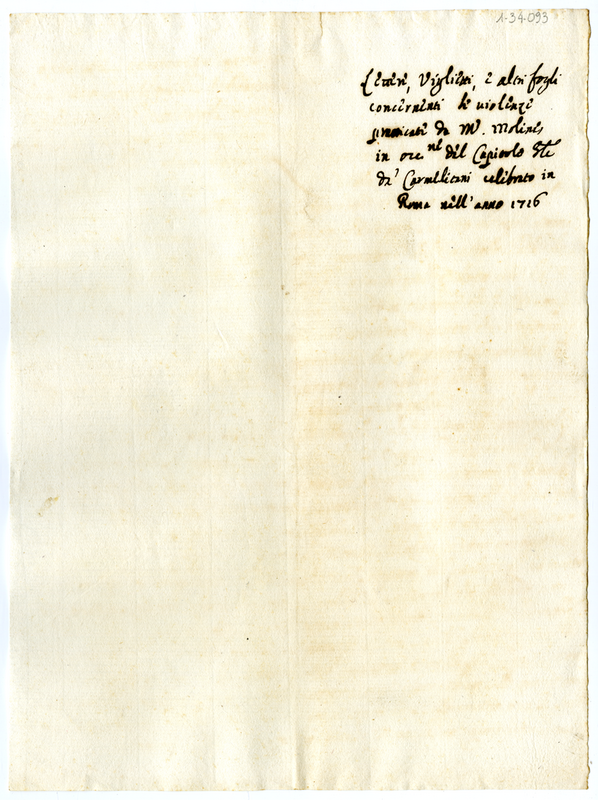 1-34-093
Lettere, Viglietti, e altri fogli
concernenti le violenze
praticate da Mr. Molines
in occ.ne del Capitolo
de' Carmelitani celebrato in
Roma nell'anno 1716